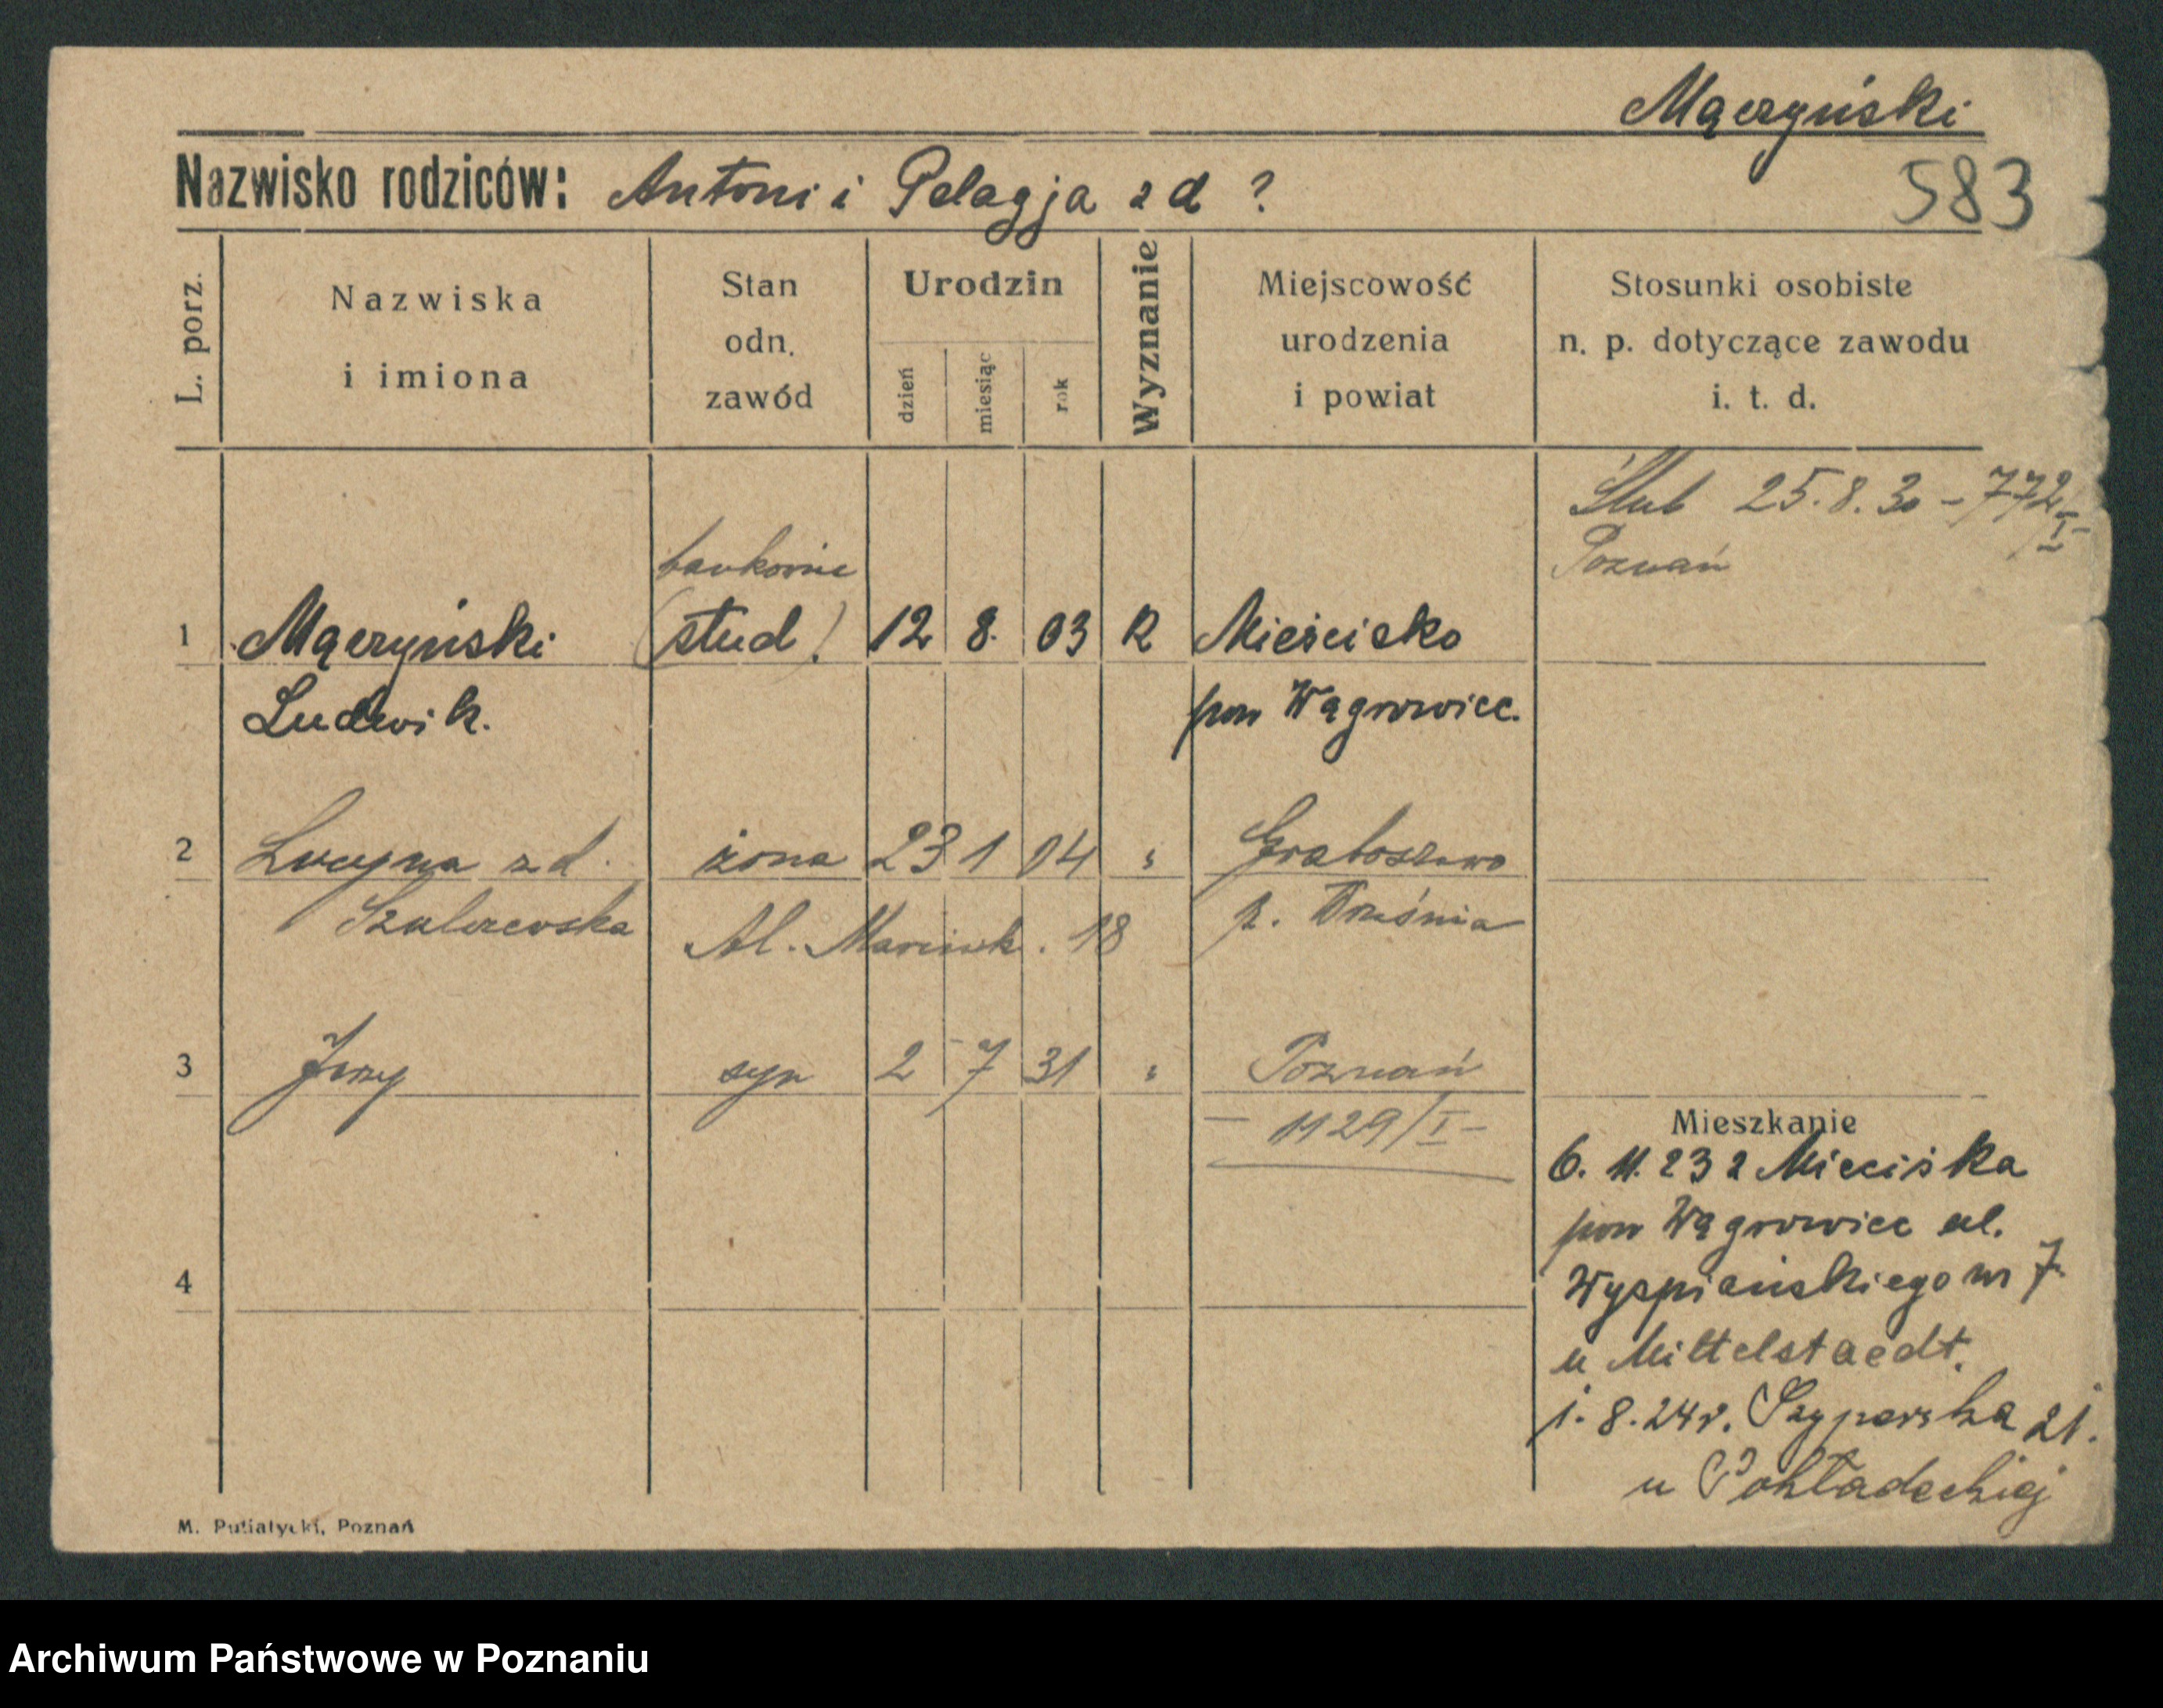 Mączyński
Nazwisko rodziców: Antoni i Pelagja zd ?
583
L. porz.
Nazwiska
i imiona
Stan
odn.
zawód
Urodzin
dzień
miesiąc
rok
Wyznanie
Miejscowość
urodzenia
i powiat
Stosunki osobiste
n. p. dotyczące zawodu
i. t. d.
Ślub 25.8.30 - 772/I-
Poznań
1 Mączyński (stud) 12 8. 03 R Mieścisko
Ludwik. pow Wągrowiec.
2 Lucyna zd. żona 23 1 04 " Graboszewo
Szulczewska Al. Marcink. 18 p. Września
3 Jerzy syn 2 7 31 " Poznań
- 1129/I -
Mieszkanie
6. 11. 23 z Mieciska
pow Wągrowiec ul.
4
Wyspiańskiego nr 7
u Mittelstaedt.
1. 8. 24 r. Szyperska 21.
u Pokładeckiej
M. Putiatycki, Poznań
Archiwum Państwowe w Poznaniu